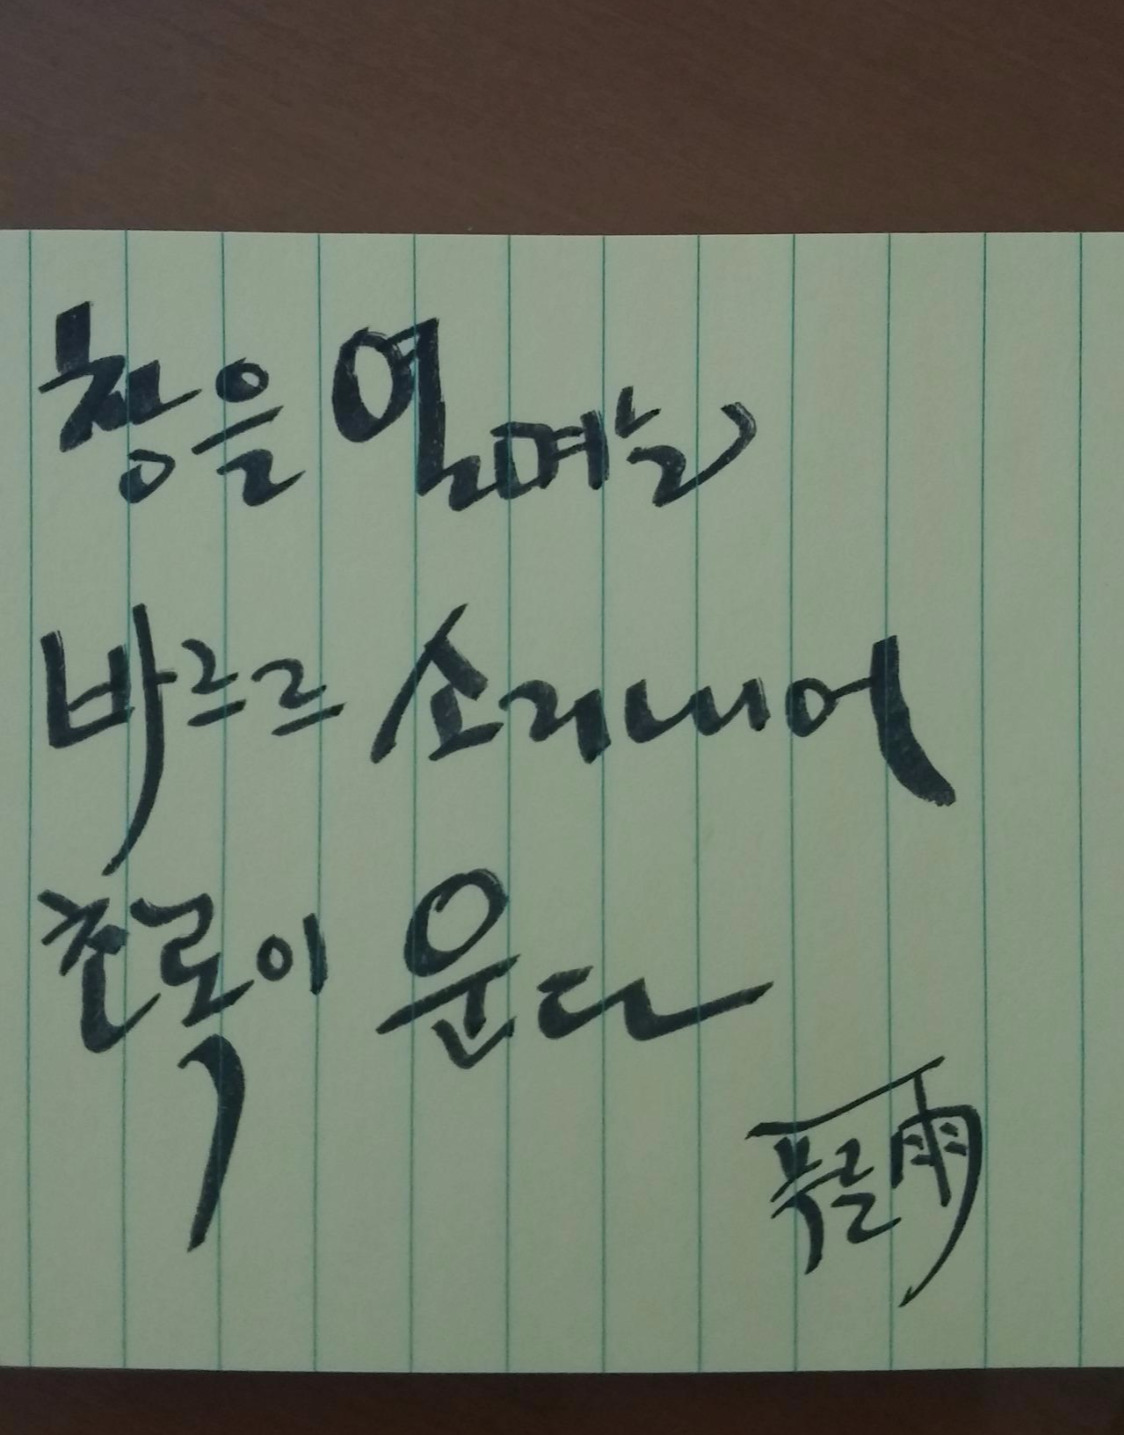 창을 열며는
바르르 소리내어
초록이 운다
푸른雨